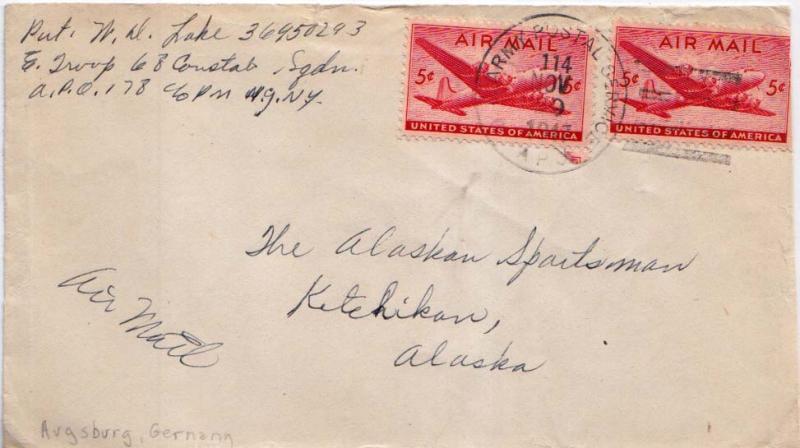 Pvt. W. D. Lake 36950293
E. Troop 68 Constab Sqdn.
A.P.O. 178 c/o P M N.Y. N.Y.
AIR MAIL
5¢ 5¢
UNITED STATES OF AMERICA
AIR MAIL
5¢ 5¢
UNITED STATES OF AMERICA
ARMY POSTAL SERVICE
114
NOV
9
A.P.O.
The Alaskan Sportsman
Ketchikan,
Alaska
Air Mail
Augsburg, Germany